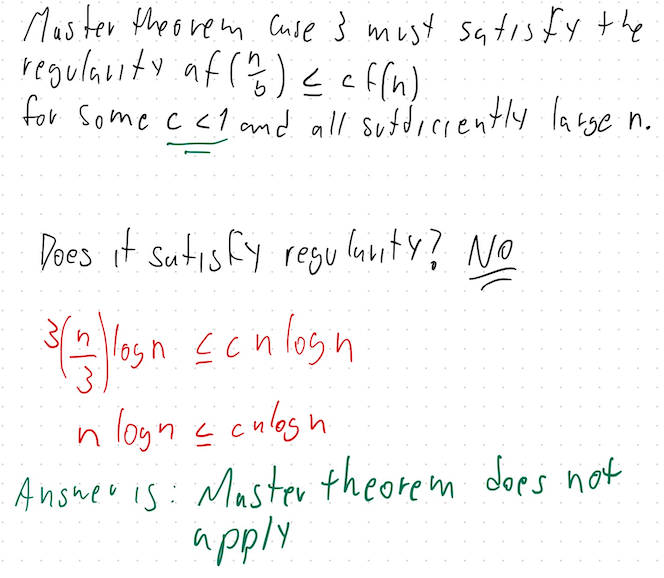 Master theorem Case 3 must satisfy the
regularity af(n/b) ≤ cf(n)
for some c<1 and all sufficiently large n.
Does it satisfy regularity? No
3(n/3)logn ≤ cnlogn
n logn ≤ cnlogn
Answer is: Master theorem does not
apply